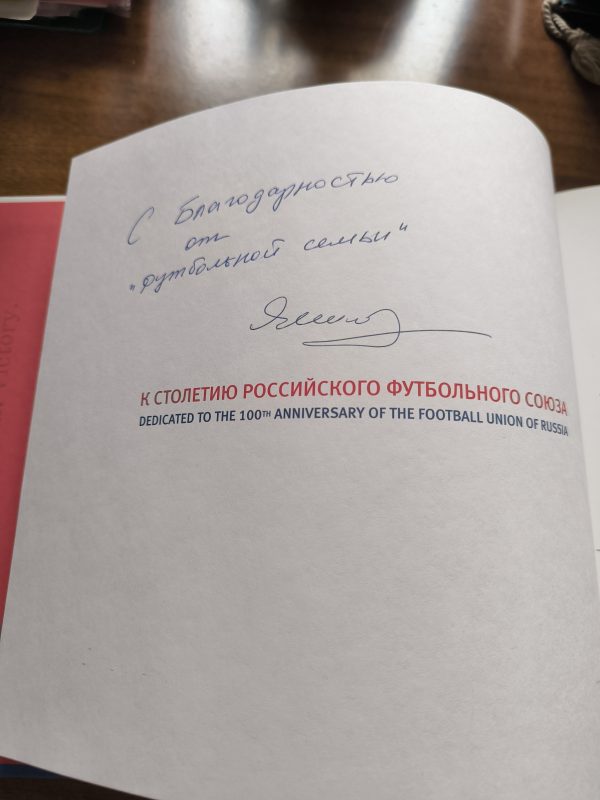 С Благодарностью
от
"футбольной семьи"
К СТОЛЕТИЮ РОССИЙСКОГО ФУТБОЛЬНОГО СОЮЗА
DEDICATED TO THE 100TH ANNIVERSARY OF THE FOOTBALL UNION OF RUSSIA
Victory.